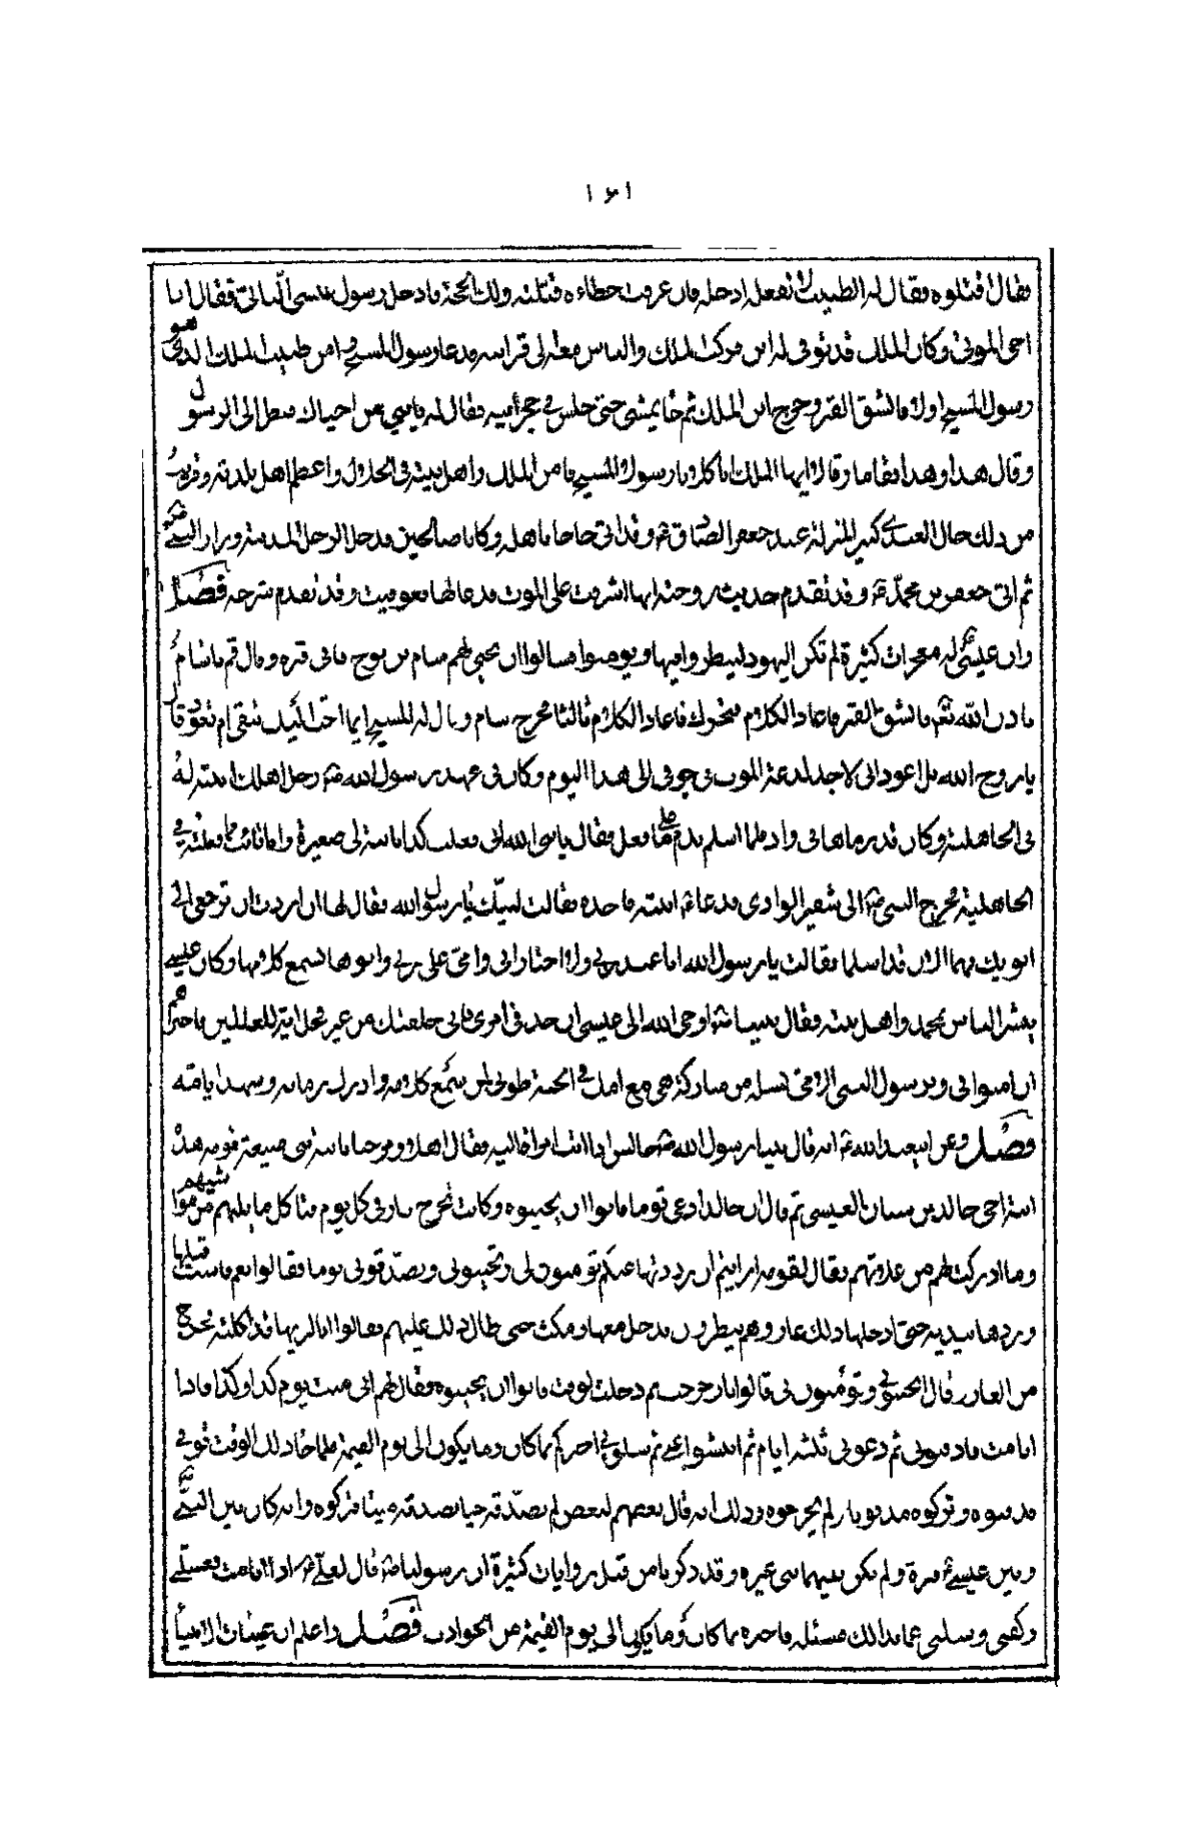 ١٦١
فقال اقتلوه فقال له الطبيب لا تفعل ادخله فان عرفت خطاءه قتلته ولك الحجة فادخل رسول عيسى الثاني فقال انا
احي الموتى وكان الملك قد توفى له ابن فركب الملك والناس معه الى قبر ابنه فدعا رسول المسيح وامن طبيب الملك الذي هو
رسول المسيح اولا فانشق القبر وخرج ابن الملك ثم جاء يمشي حتى جلس في حجر ابيه فقال له يا بني من احياك فنظر الى الرسول
وقال هذا وهذا فقاما وقالا ايها الملك انا كلانا رسولا المسيح فامن الملك واهل بيته في الحال واعظم اهل بلدته
من ذلك حال العبدي كبير المنزلة عند جعفر الصادق ع وقد اتى حاجا باهله وكانا صالحين فدخل الرجل المدينة وزار النبي ص
ثم اتى جعفر بن محمد ع وقد تقدم حديث زوجته انها اشرفت على الموت فدعا لها فعوفيت وقد تقدم شرحه فصل
وان عيسى ع له معجزات كثيرة لم تكن اليهود لينظروا فيها ويؤمنوا فسالوا ان يحيي لهم سام بن نوح فاتى قبره وقال قم يا سام
باذن الله تعم فانشق القبر فاعاد الكلام فتحرك فاعاد الكلام ثالثا فخرج سام وقال له المسيح ايما احب اليك تبقى ام تعود قال
يا روح الله بل اعود اني لاجد لدغة الموت في جوفي الى هذا اليوم وكان في عهد رسول الله ص رجل اهلك ابنته له
في الجاهلية وكان قد رماها في واد فلما اسلم ندم على ما فعل فقال يا نبي الله اني فعلت كذا بابنة لي صغيرة وانا تائب مما فعلته في
الجاهلية فخرج النبي ص الى شفير الوادي فدعا ابنته فاحده فقالت لبيك يا رسول الله فقال لها ان اردت ان ترجعي الى
ابويك فهما الان قد اسلما فقالت يا رسول الله انا عند ربي ولا اختار ابي وامي على ربي وابوها تسمع كلامها وكان عيسى
يبشر الناس بمحمد واهل بيته وقال نبينا ص اوحى الله الى عيسى ان جد في امري فاني خلقتك من غير فحل اية للعالمين فاخبرهم
ان امنوا بي وبرسول النبي الامي نسله من مباركة هي مع امك في الجنة طوبى لمن سمع كلامه وادرك زمانه وشهد ايامه
فصل وعن ابيعبد الله ع انه قال بينا رسول الله ص جالس اذا امراة فقال اهلا ومرحبا بابنة نبي ضيعه قومه هذه
ابنة اخي خالد بن سنان العبسي ثم قال ان خالدا دعى قومه فابوا ان يجيبوه وكانت تخرج نار في كل يوم فتاكل ما يليهم من مواشيهم
وما ادركت لهم من غلاتهم فقال لقومه ارايتم ان رددتها عنكم تؤمنون لي وتجيبوني وتصدقوني يوما فقالوا نعم فاستقبلها
وردها بيديه حتى ادخلها ذلك غار وهم ينظرون فدخل معها ومكث حتى طال ذلك عليهم فقالوا انا لنريها قد اكلته فخرج
من الغار قال اتجيبوني وتؤمنون بي قالوا نار خرجت ثم دخلت لوقت فابوا ان يجيبوه فقال لهم اني ميت يوم كذا وكذا فاذا
انا مت فادفنوني ثم دعوني ثلثه ايام ثم انبشوا عني ثم سلوني اخبركم بما كان وما يكون الى يوم القيمة فلما جاء ذلك الوقت توفي
فدفنوه وتركوه مدفونا لم يخرجوه وذلك انه قال بعضهم لبعض لم نصدقه حيا نصدقه ميتا فتركوه وانه كان بين النبي
وبين عيسى ع فترة ولم يكن بينهما نبي غيره وقد ذكرنا من قبل روايات كثيرة ان رسولنا ص قال لعلي ع اذا انا مت فغسلني
وكفني وسلني عما بدا لك مسئله فاخبره بما كان وما يكون الى يوم القيمة من الحوادث فصل واعلم ان غيبات الانبياء